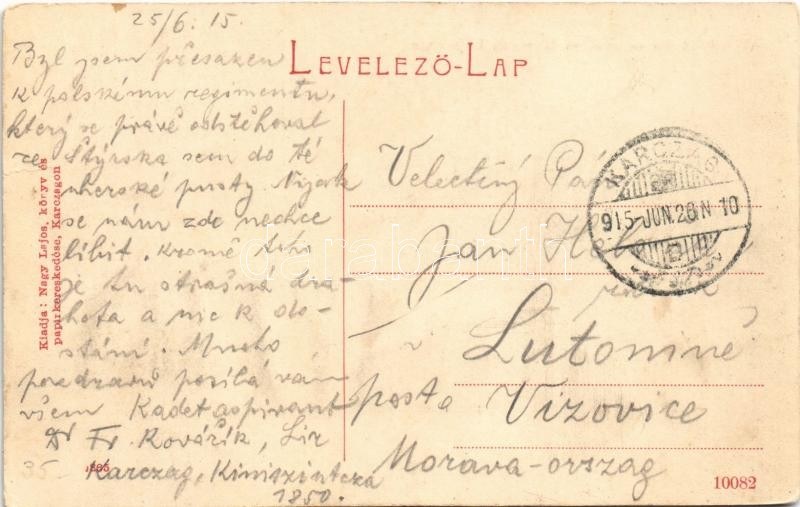 25/6. 15.
Byl jsem přesazen
k polskému regimentu,
který se právě odstěhoval
ze Štýrska sem do té
uherské pusty. Nijak
se nám zde nechce
líbit. Kromě toho
je tu strašná dra-
hota a nic k do-
stání. Mnoho
pozdravů posílá vám
všem Kadetaspirant
Dr Fr. Kovářík, Lir
Karczag, Kiniszintcza
1850.
LEVELEZŐ-LAP
Velectěný Pán
Jan
v
Lutonině
posta Vizovice
Morava-ország
KARCZAG
915-JUN.26 N 10
Kiadja: Nagy Lajos, könyv és
papirkereskedése, Karczagon
35
10082
darabanth.com